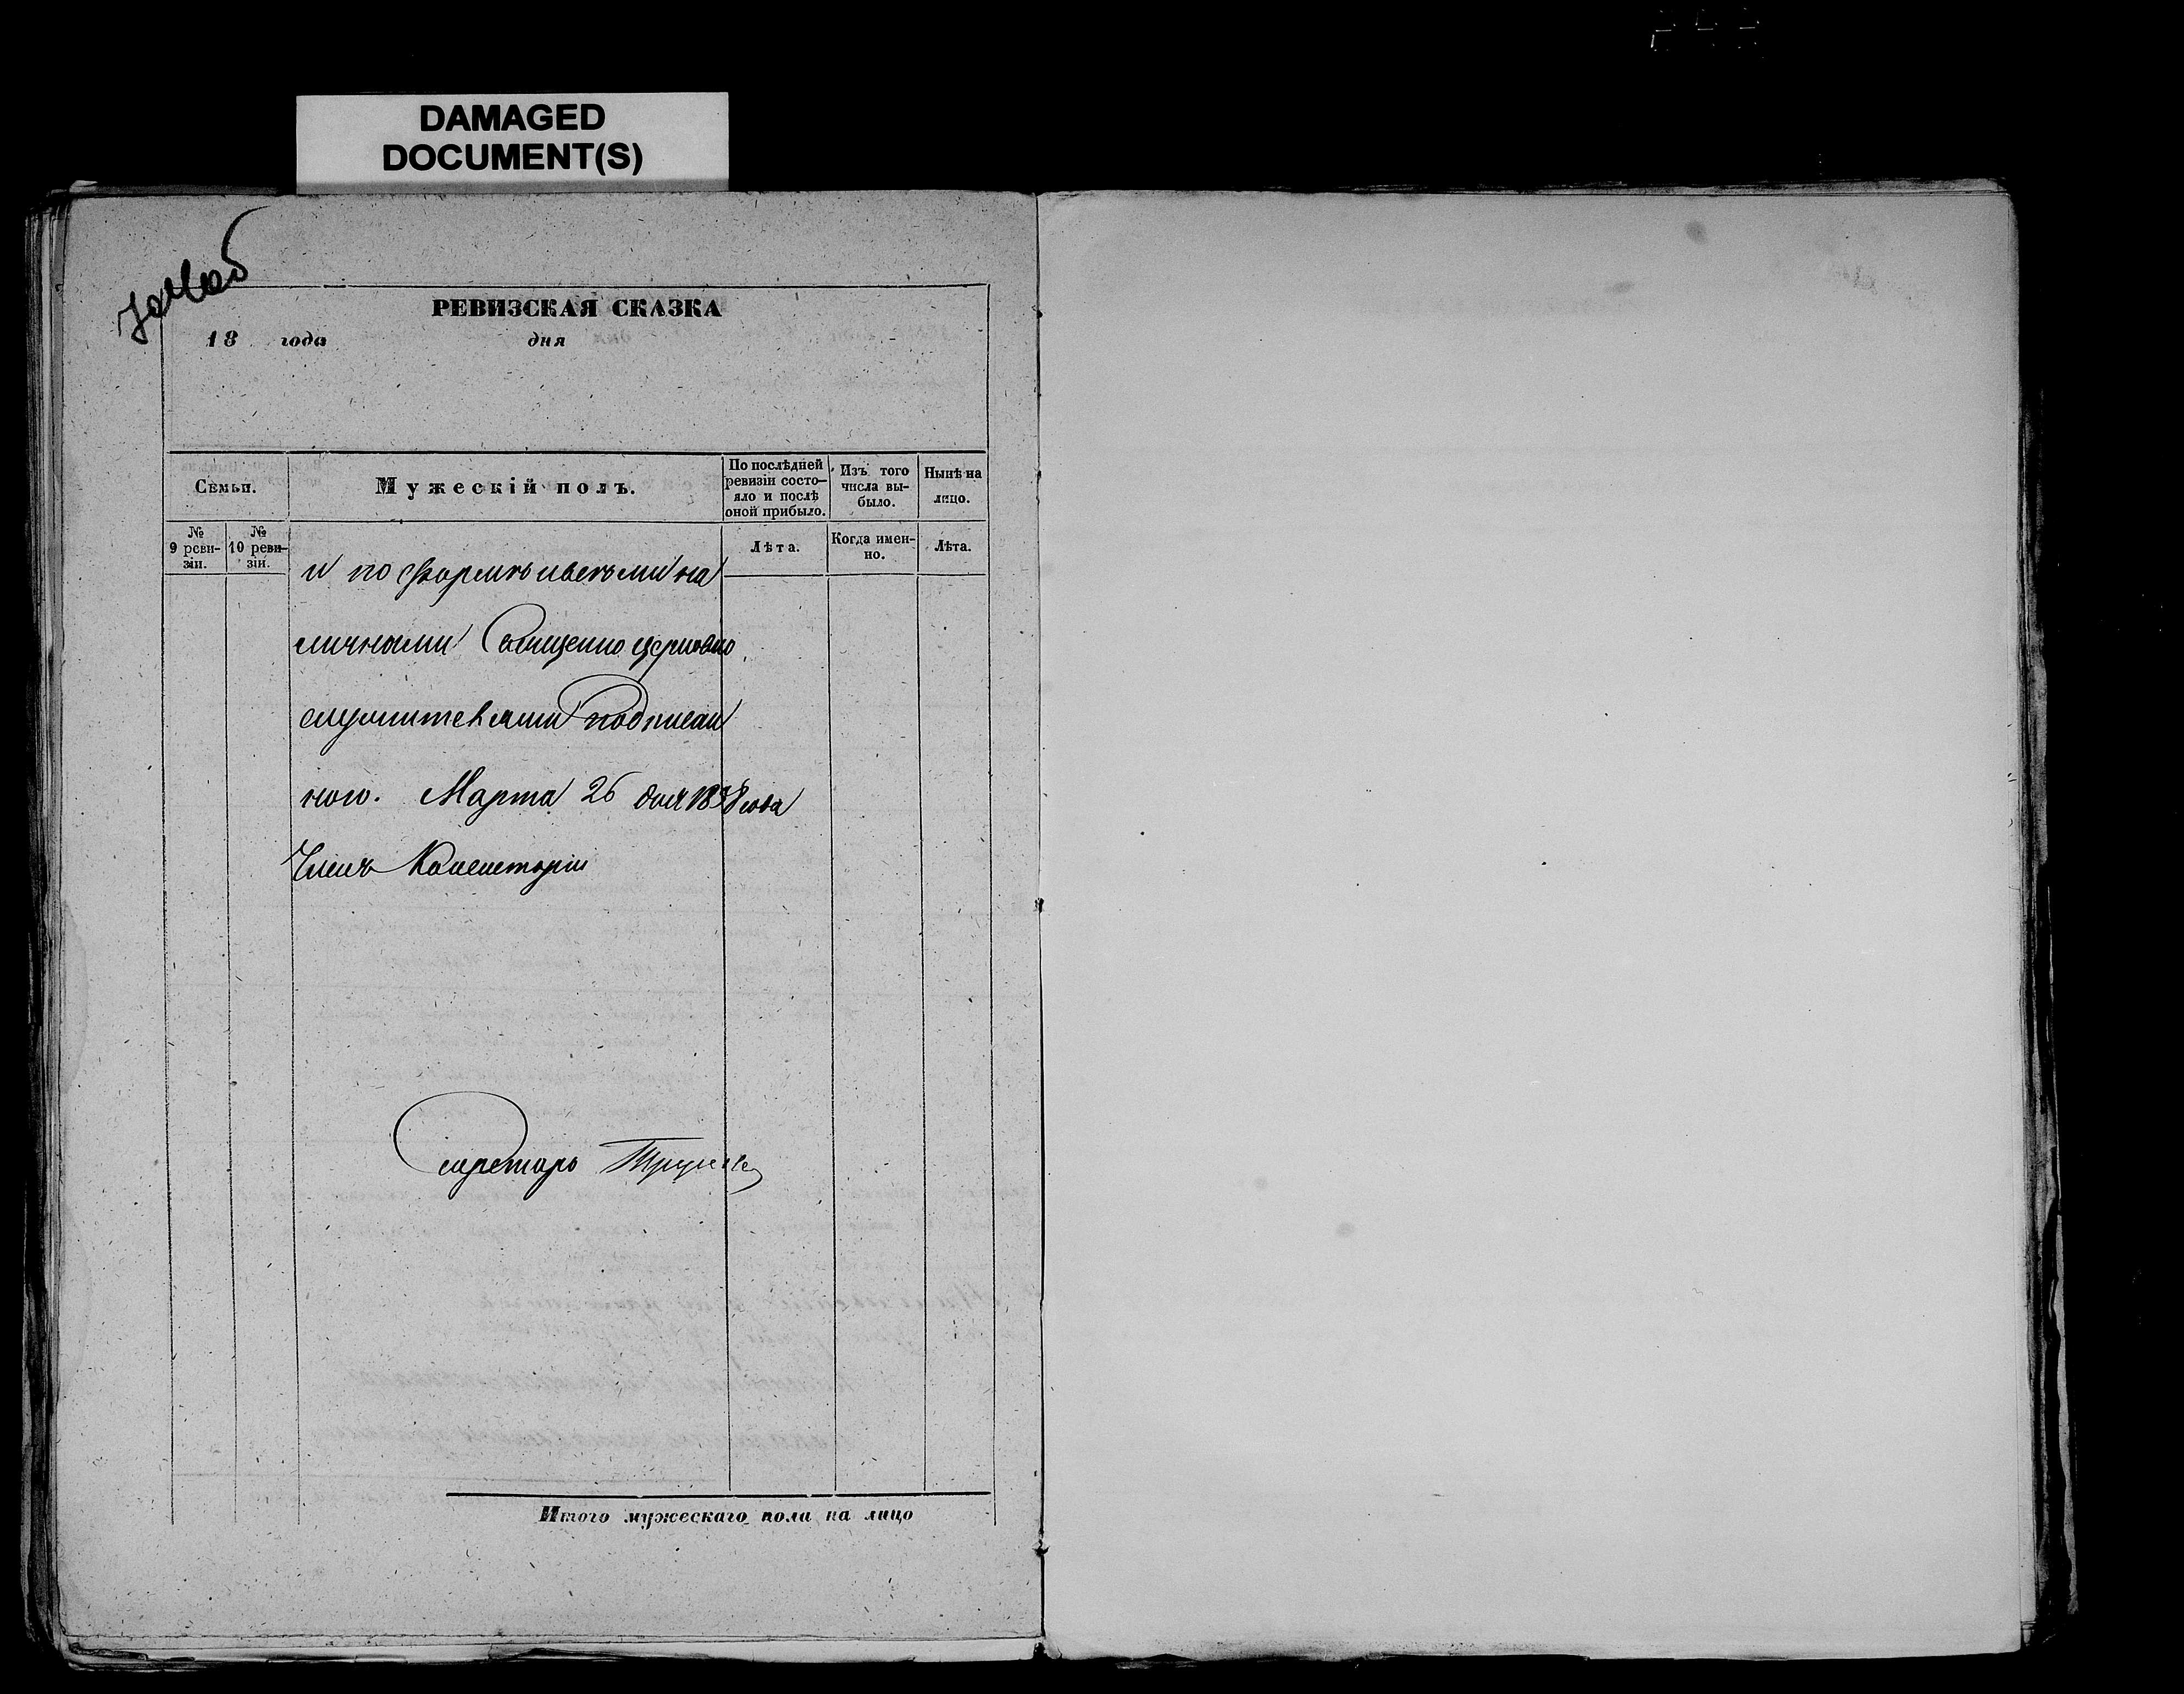 DAMAGED
DOCUMENT(S)
РЕВИЗСКАЯ СКАЗКА
18 года дня
Семьи.
Мужескій полъ.
По послѣдней ревизіи состо-
яло и послѣ
оной прибыло.
Изъ того
числа вы-
было.
Нынѣ на
лицо.
№
9 реви-
зіи.
№
10 реви-
зіи.
Лѣта.
Когда имен-
но.
Лѣта.
и по формѣ и всѣми на
личными Священно церковно
служителями подписан
ного. Марта 26 дня 1858 года
Членъ Консисторіи
Секретарь
Итого мужескаго пола на лицо